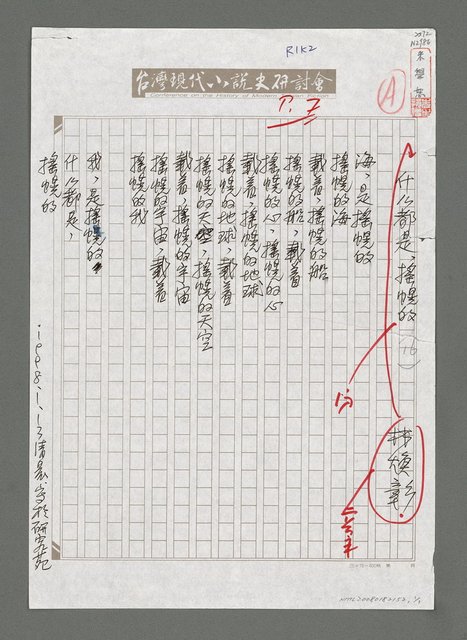 R1K2
台灣現代小說史研討會
Conference on the History of Modern Fiction
P. 7
A
什么都是,搖幌的
(16)
林煥彰
海,是搖幌的
搖幌的海
載着,搖幌的船
搖幌的船,載着
搖幌的心,搖幌的心
載着,搖幌的地球
搖幌的地球,載着
搖幌的天空,搖幌的天空
載着,搖幌的宇宙
搖幌的宇宙,載着
搖幌的我
我,是搖幌的
什么都是,
搖幌的
1998.1.13清晨寫於研究苑
NMTL20080182152, 1/1